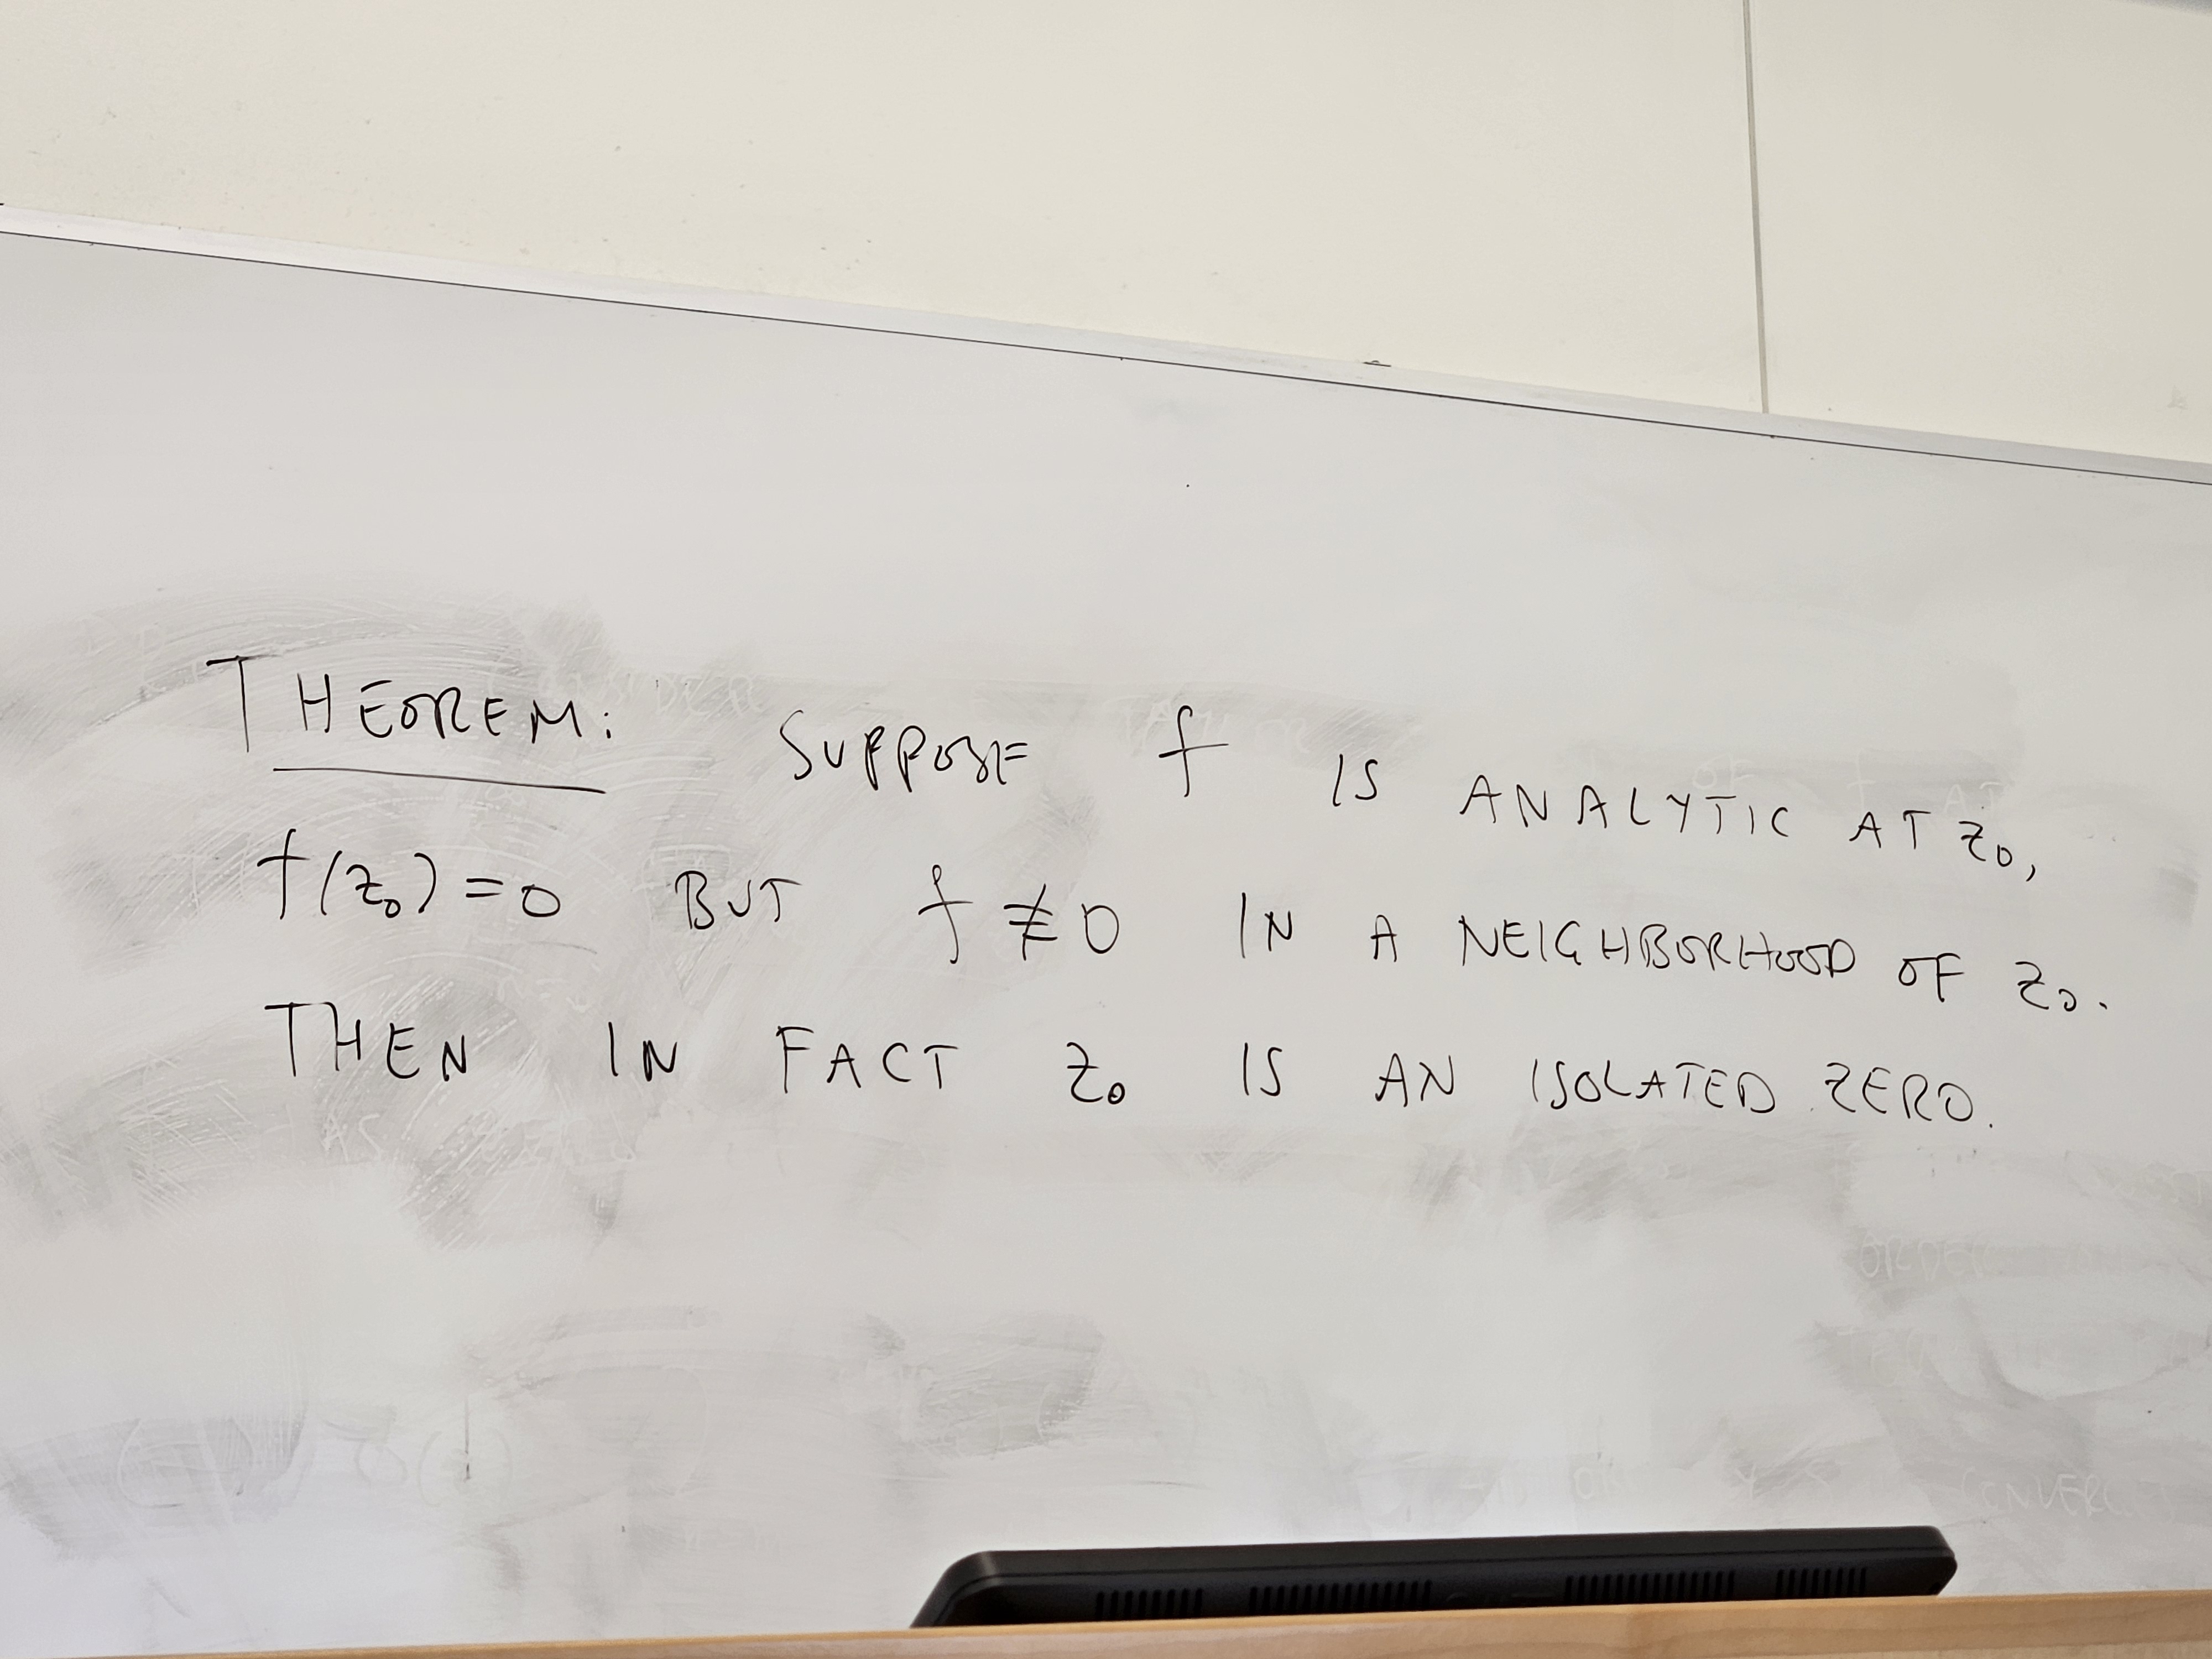 THEOREM: SUPPOSE f IS ANALYTIC AT z₀,
f(z₀) = 0 BUT f ≢ 0 IN A NEIGHBORHOOD OF z₀.
THEN IN FACT z₀ IS AN ISOLATED ZERO.